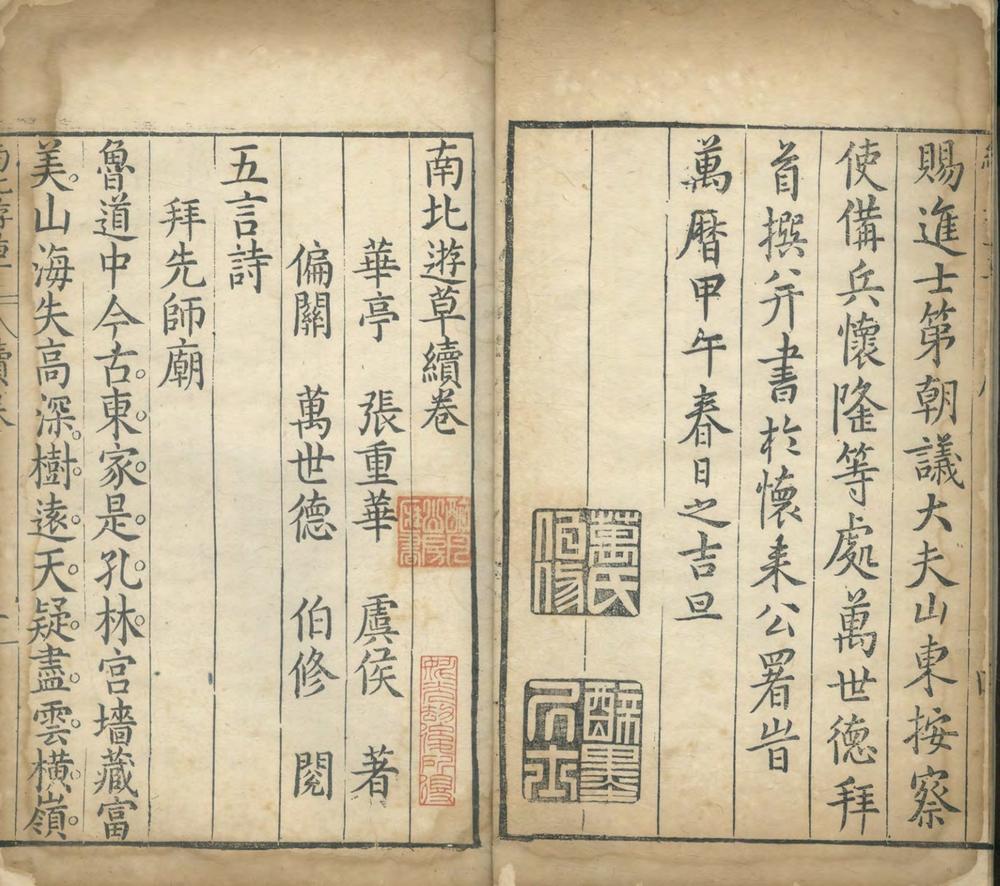 賜進士第朝議大夫山東按察
使備兵懷隆等處萬世德拜
首撰并書於懷来公署旹
萬曆甲午春日之吉旦
萬氏伯修
南北遊草續卷
華亭 張重華 虞侯 著
偏關 萬世德 伯修 閱
五言詩
拜先師廟
魯道中今古。東家是孔林。宮墻藏富
美。山海失高深。樹遠天疑盡。雲橫嶺